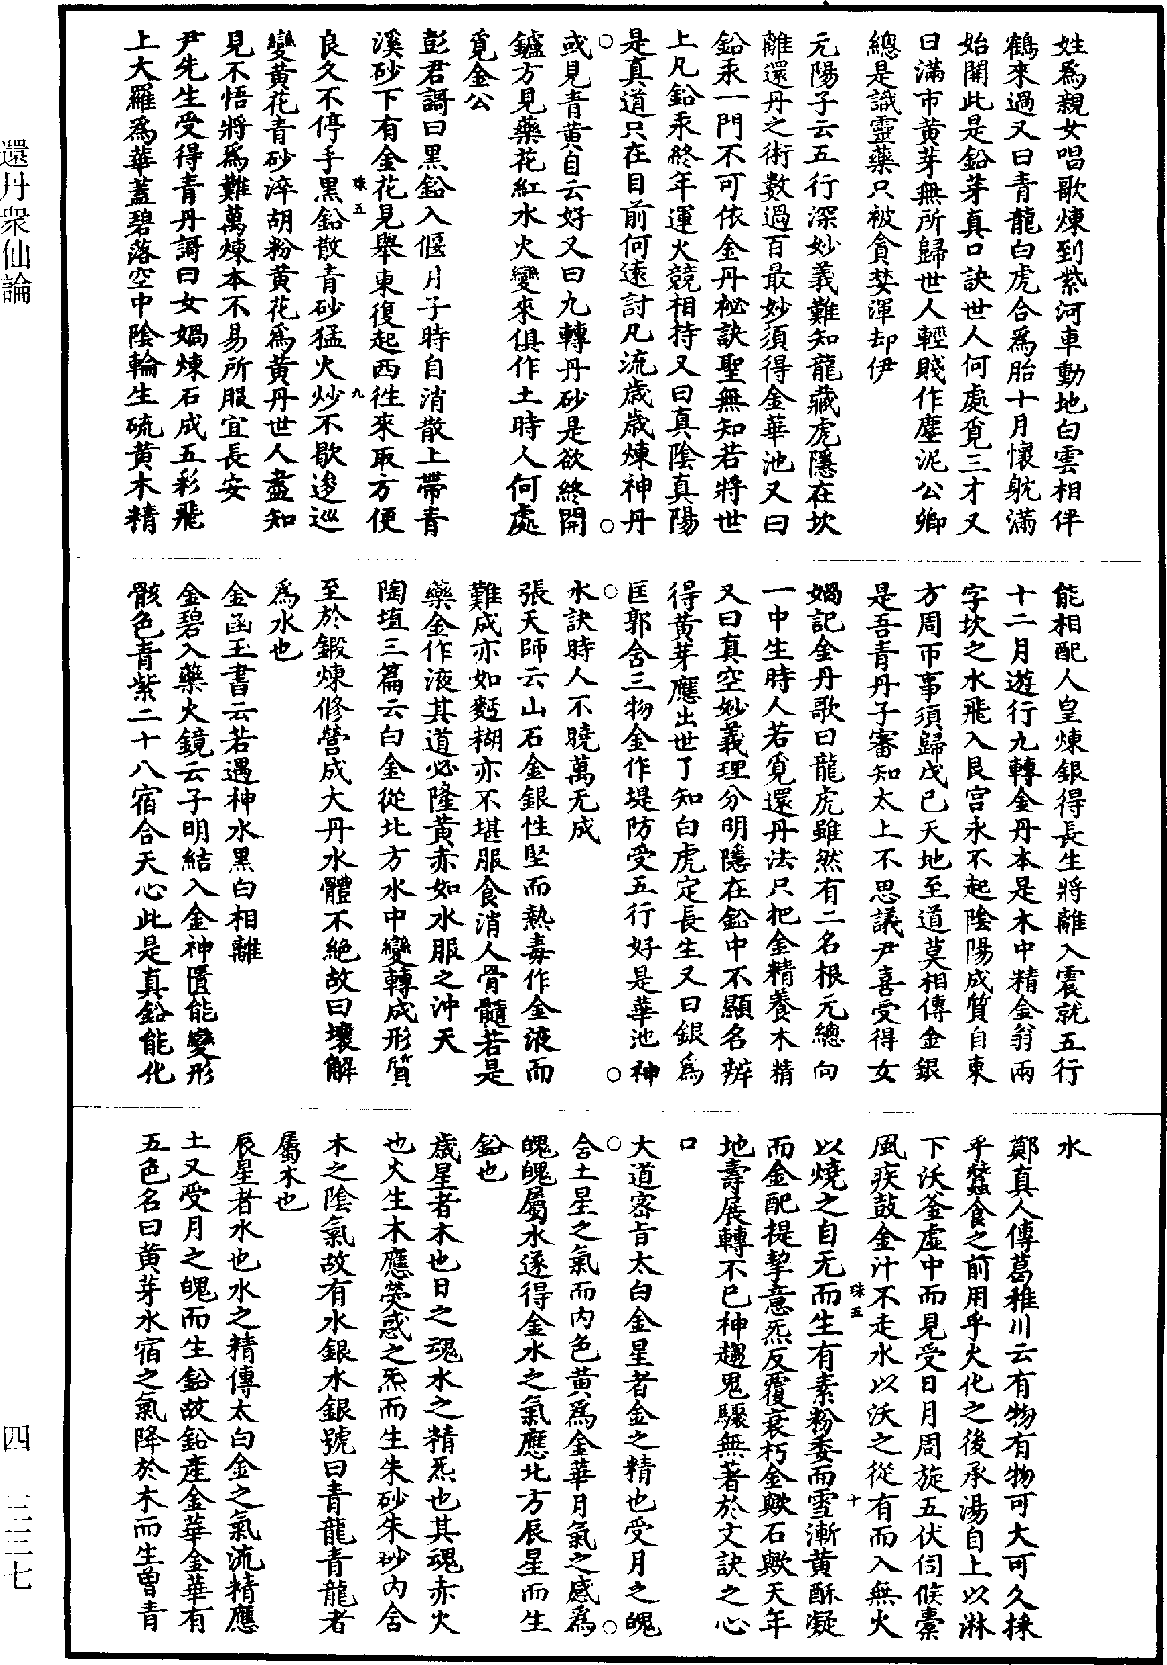 姹為親女唱歌煉到紫河車動地白雲相伴
鶴來過又曰青龍白虎合為胎十月懷躭滿
始開此是鉛芽真口訣世人何處覓三才又
曰滿市黃芽無所歸世人輕賤作塵泥公卿
總是識靈藥只被貪婪渾却伊
元陽子云五行深妙義難知龍藏虎隱在坎
離還丹之術數過百最妙須得金華池又曰
鉛汞一門不可依金丹祕訣聖無知若將世
上凡鉛汞終年運火競相持又曰真陰真陽
是真道只在目前何遠討凡流歲歲煉神丹
或見青黃自云好又曰九轉丹砂是欲終開
鑪方見藥花紅水火變來俱作土時人何處
覓金公
彭君謌曰黑鉛入偃月子時自消散上帶青
溪砂下有金花見舉東復起西往來取方便
珠五 九
良久不停手黑鉛散青砂猛火炒不歇逡巡
變黃花青砂淬胡粉黃花為黃丹世人盡知
見不悟將為難萬煉本不易所服宜長安
尹先生受得青丹謌曰女媧煉石成五彩飛
上大羅為華蓋碧落空中陰輪生硫黃木精
能相配人皇煉銀得長生將離入震就五行
十二月遊行九轉金丹本是木中精金翁兩
字坎之水飛入艮宮永不起陰陽成質自東
方周帀事須歸戊己天地至道莫相傳金銀
是吾青丹子審知太上不思議尹喜受得女
媧記金丹歌曰龍虎雖然有二名根元總向
一中生時人若覓還丹法只把金精養木精
又曰真空妙義理分明隱在鉛中不顯名辨
得黃芽應出世了知白虎定長生又曰銀為
匡郭含三物金作堤防受五行好是華池神
水訣時人不曉萬无成
張天師云山石金銀性堅而熱毒作金液而
難成亦如麪糊亦不堪服食消人骨髓若是
藥金作液其道必隆黃赤如水服之沖天
陶埴三篇云白金從北方水中變轉成形質
至於鍛煉修營成大丹水體不絕故曰壞解
為水也
金函玉書云若遇神水黑白相離
金碧入藥火鏡云子明結入金神匱能變形
骸色青紫二十八宿合天心此是真鉛能化
水
鄭真人傳葛稚川云有物有物可大可久採
乎蠶食之前用乎火化之後承湯自上以淋
下沃釜虛中而見受日月周旋五伏伺候橐
風疾鼓金汁不走水以沃之從有而入無火
珠五 十
以燒之自无而生有素粉委而雪漸黃酥凝
而金配提挈意炁反覆衰朽金歟石歟天年
地壽展轉不已神趨鬼驟無著於文訣之心
口
大道密旨太白金星者金之精也受月之魄
含土星之氣而內色黃為金華月氣之感為
魄魄屬水遂得金水之氣應北方辰星而生
鉛也
歲星者木也日之魂水之精炁也其魂赤火
也火生木應熒惑之炁而生朱砂朱砂內含
木之陰氣故有水銀水銀號曰青龍青龍者
屬木也
辰星者水也水之精傳太白金之氣流精應
土又受月之魄而生鉛故鉛產金華金華有
五色名曰黃芽水宿之氣降於木而生曾青
還丹衆仙論
四 三三七